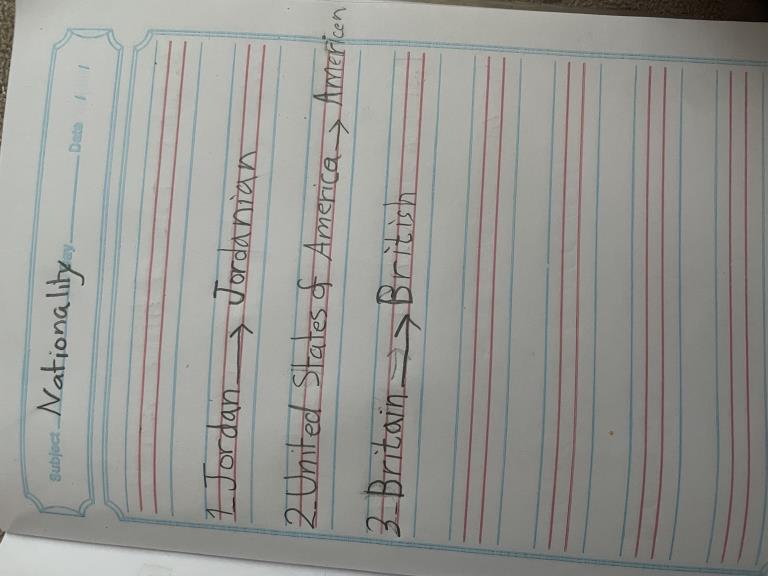 Subject Nationality Day Date / /
1_Jordan → Jordanian
2_United States of America → American
3_Britain → British